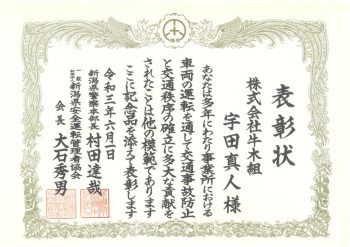 表彰状
株式会社牛木組
宇田真人様
あなたは多年にわたり事業所における
車両の運転を通して交通事故防止
と交通秩序の確立に多大な貢献を
されたことは他の模範であります
ここに記念品を添えて表彰します
令和三年六月一日
新潟県警察本部長 村田達哉
一般社団法人 新潟県安全運転管理者協会
会長 大石秀男